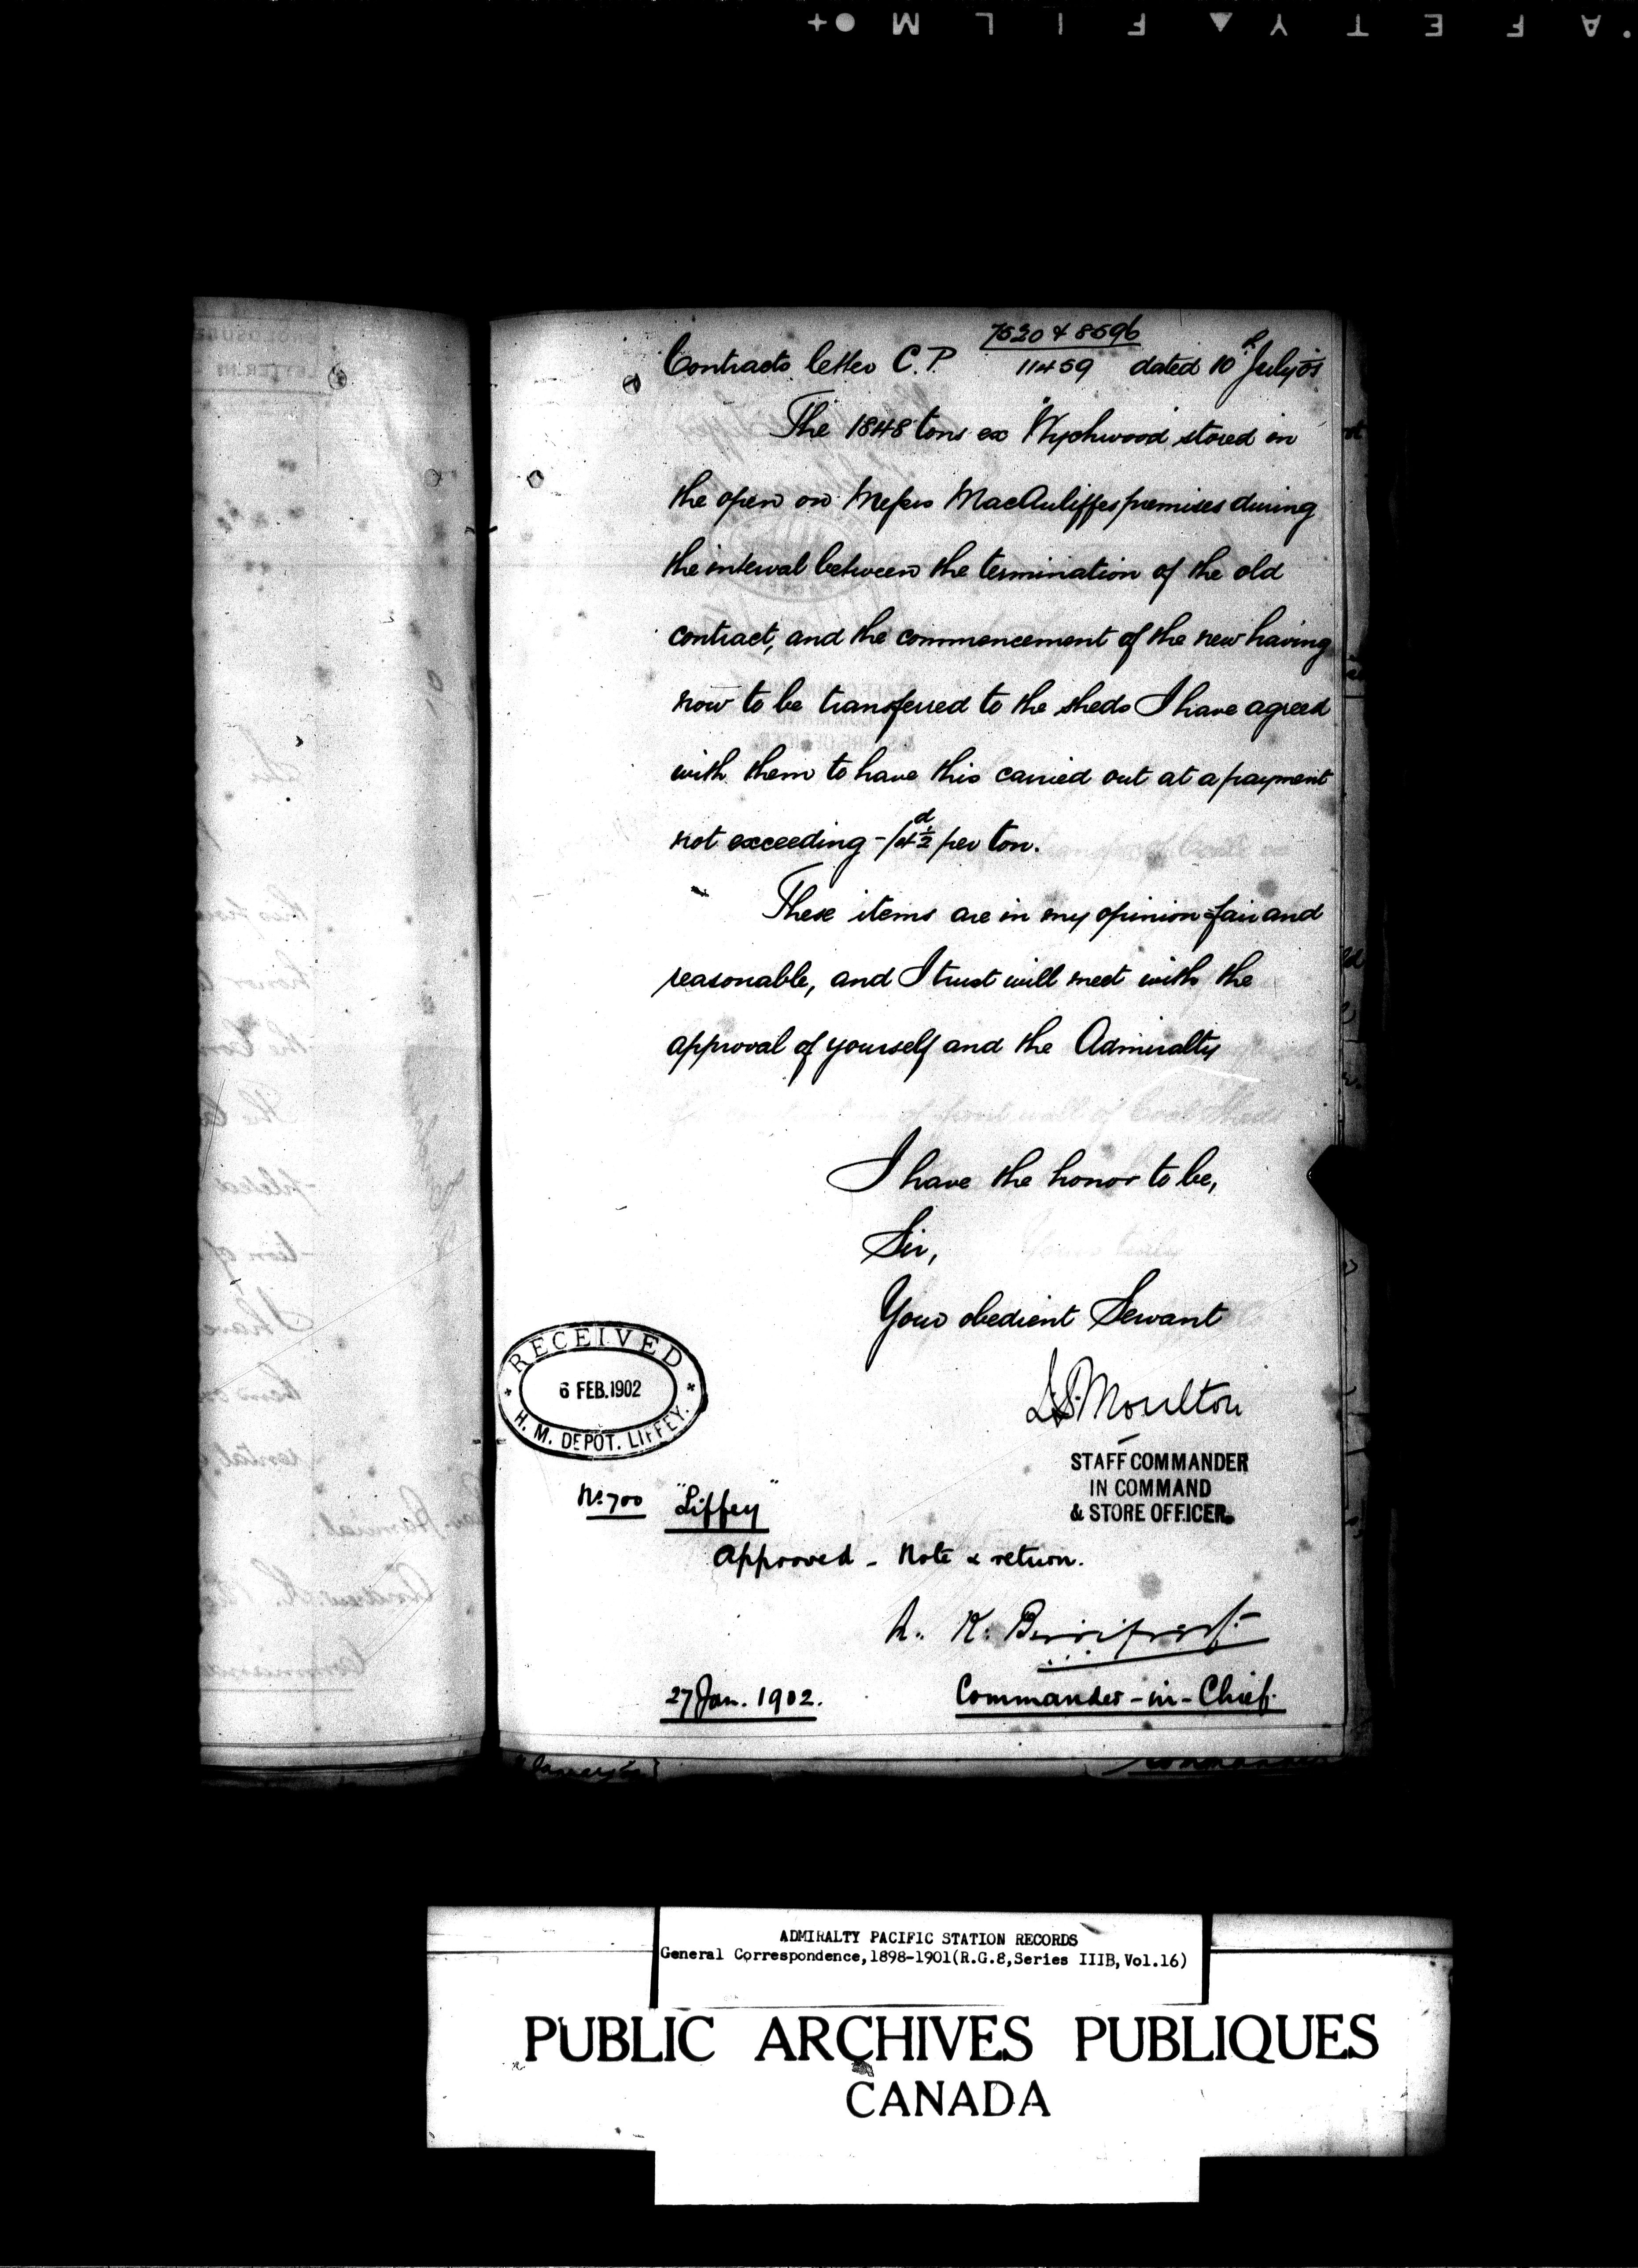 7520 & 8596
Contracts letter C.P. 11459 dated 10th July 01
The 1848 tons ex "Wychwood" stored in
the open on Messrs MacAuliffes premises during
the interval between the termination of the old
contract, and the commencement of the new having
now to be transferred to the sheds I have agreed
with them to have this carried out at a payment
not exceeding -/4½d per ton.
These items are in my opinion fair and
reasonable, and I trust will meet with the
approval of yourself and the Admiralty
I have the honor to be,
Sir,
Your obedient Servant
Moulton
STAFF COMMANDER
IN COMMAND
& STORE OFFICER.
RECEIVED
6 FEB. 1902
H. M. DEPÔT. LIFFEY.
No 700 "Liffey"
Approved - Note & return.
A. K.
27 Jan. 1902. Commander-in-Chief.
ADMIRALTY PACIFIC STATION RECORDS
General Correspondence, 1898-1901 (R.G.8, Series IIIB, Vol.16)
PUBLIC ARCHIVES PUBLIQUES
CANADA